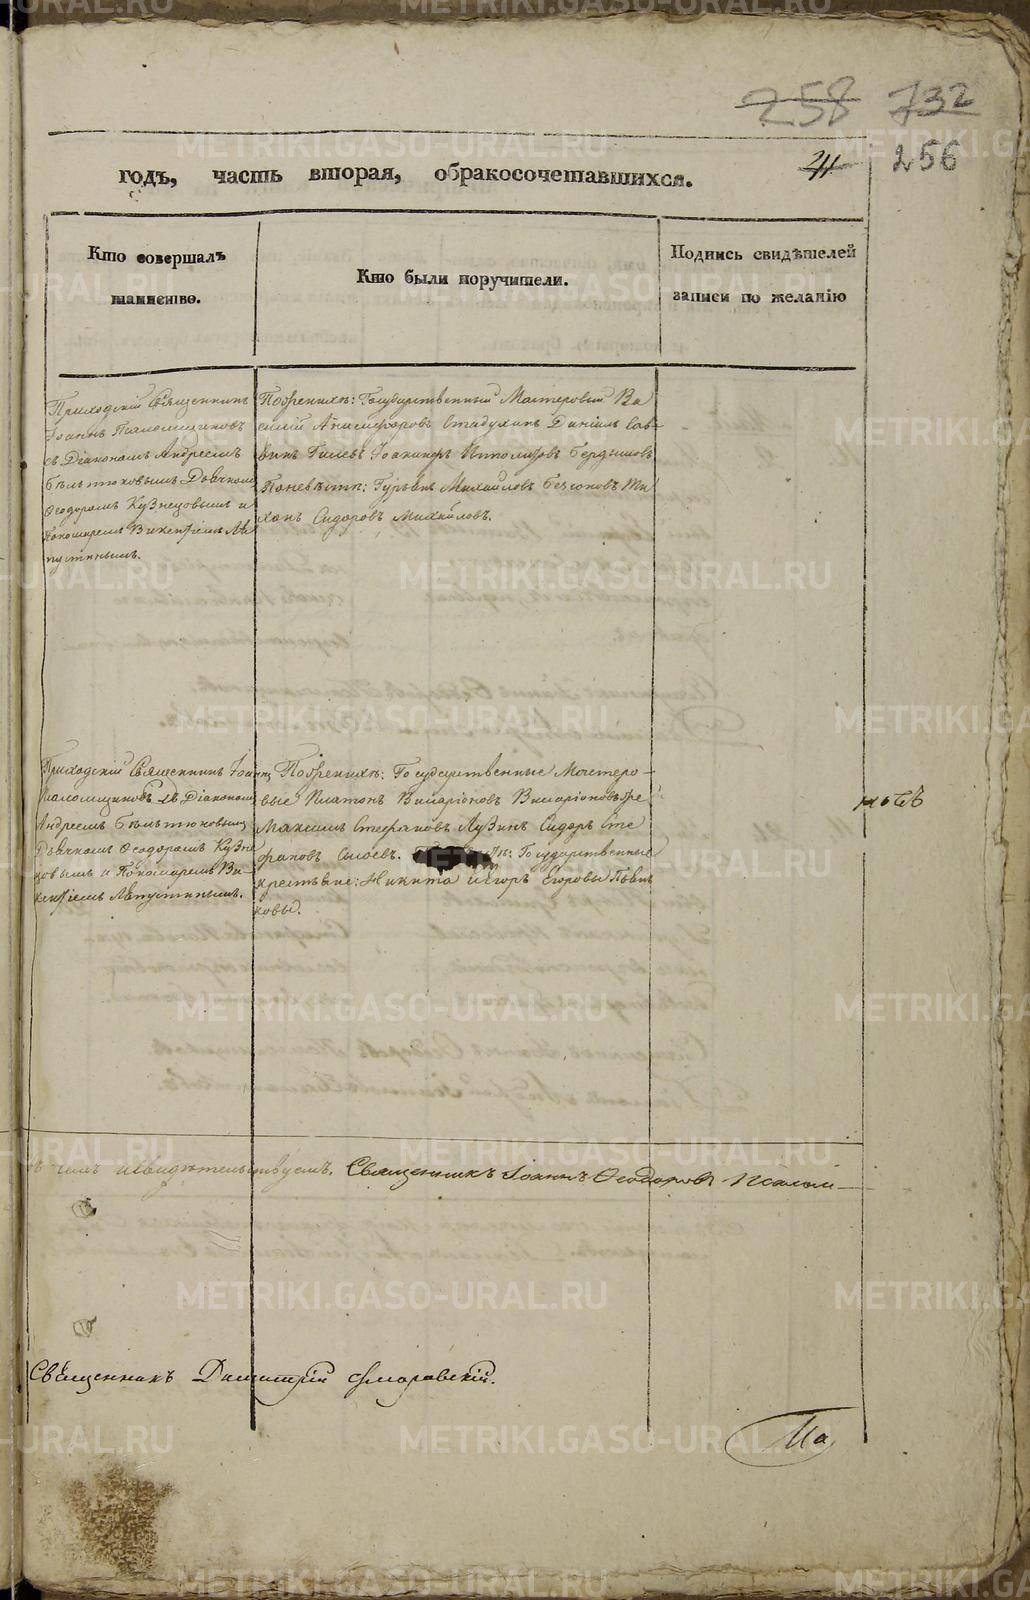 258 732
годъ, часть вторая, обракосочетавшихся.
211 256
Кто совершалъ
таинство.
Кто были поручители.
Подпись свидѣтелей
записи по желанію
Приходскій Священникъ
Іоаннъ Псаломщиковъ
съ Діакономъ Андреемъ
Бѣльтюковымъ Дьячкомъ
Ѳеодоромъ Кузнецовымъ и
Пономаремъ Викентіемъ Ла
пустинымъ.
По женихѣ: Государственный Мастеровый Ва
силій Стадухинъ Даніилъ Сав
винъ Іоакимъ Бердышовъ
По невѣстѣ: Гурьянъ Михайловъ Ми
Сидоровъ Михайловъ.
Приходскій Священникъ Іоаннъ
Псаломщиковъ съ Діакономъ
Андреемъ Бѣльтюковымъ
Дьячкомъ Ѳеодоромъ Кузне
цовымъ и Пономаремъ Ви
кентіемъ Лапустинымъ.
По женихѣ: Государственные Мастеро-
вые Платонъ Иларіоновъ
Максимъ Стефановъ Лузинъ Сидоръ Сте
фановъ Сысоевъ. Государственные
крестьяне: Никита и Егоръ Егоровы Пьян
ковы.
въ чемъ и свидѣтельствуемъ. Священникъ Іоаннъ Ѳеодоровъ Псалом-
Священникъ Димитрій
METRIKI.GASO-URAL.RU